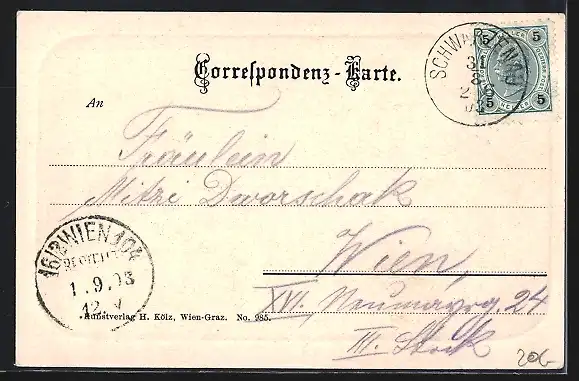 Correspondenz-Karte.
SCHWARZENAU
5 5
5 5
HELLER
An
Fräulein
Mitzi Dworschak
Wien,
XVI. Neumayrg. 24
III. Stock
16/2 WIEN 104
1.9.03
12.V
Kunstverlag H. Kölz, Wien-Graz. No. 985.